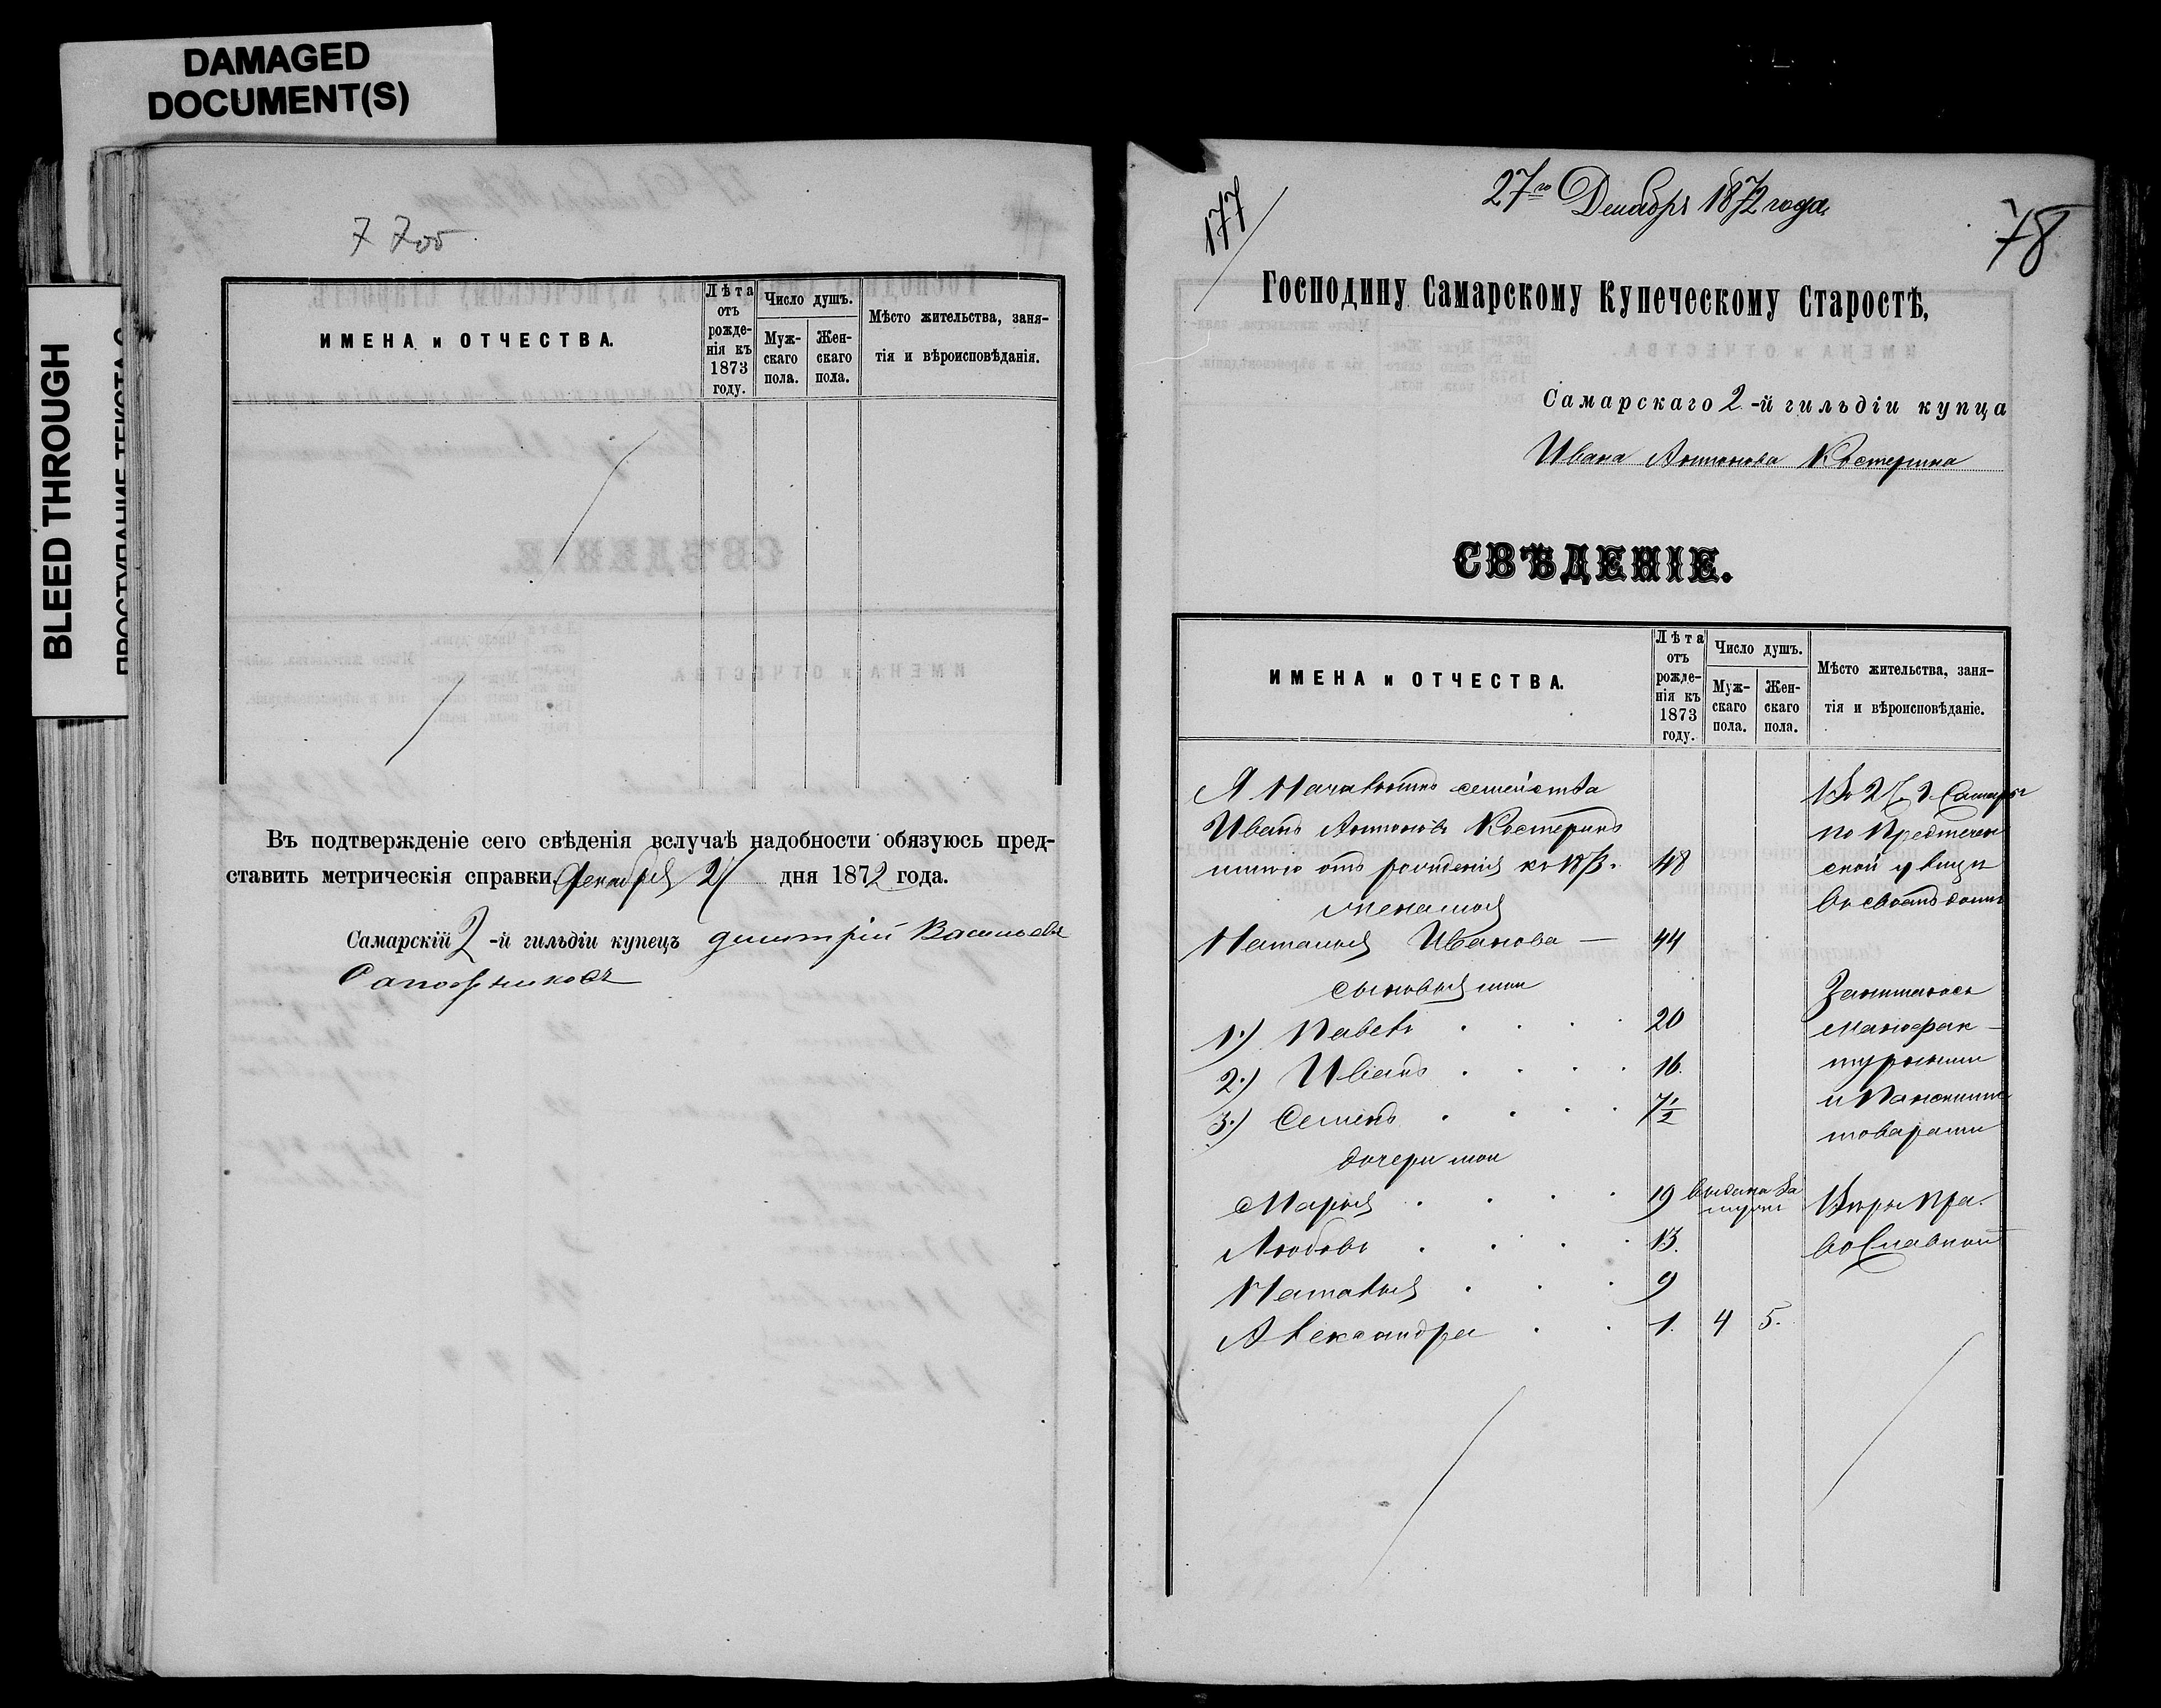 DAMAGED
DOCUMENT(S)
BLEED THROUGH
ПРОСТУПАНИЕ ТЕКСТА С
77об.
ИМЕНА и ОТЧЕСТВА.
Лѣта отъ рожденія къ 1873 году.
Число душъ.
Мужскаго пола.
Женскаго пола.
Мѣсто жительства, заня-
тія и вѣроисповѣданія.
Въ подтвержденіе сего свѣденія вслучаѣ надобности обязуюсь пред-
ставить метрическія справки. Декабря 27 дня 1872 года.
Самарскій 2-й гильдіи купецъ Дмитрій Васильевъ
Сапожниковъ
177
27го Декабря 1872 года.
78
Господину Самарскому Купеческому Старостѣ,
Самарскаго 2-й гильдіи купца
Ивана Антонова Костерина
СВѢДЕНІЕ.
ИМЕНА и ОТЧЕСТВА.
Лѣта отъ рожденія къ 1873 году.
Число душъ.
Мужскаго пола.
Женскаго пола.
Мѣсто жительства, заня-
тія и вѣроисповѣданіе.
Я Началникъ семейства
Иванъ Антоновъ Костеринъ
имѣю отъ рожденія къ 1873 г. 48
жена моя
Наталья Иванова — 44
сыновья мои
1.) Павелъ 20
2.) Иванъ 16.
3.) Семенъ 7 1/2
дочери мои
Марья 19 выдана за мужъ
Любовь 13.
Наталья 9
Александра 1. 4 5.
Самары
по Предтечен
ской улицы
во своемъ домѣ
Занимаюсь
мануфак-
турными
и Панскими
товарами
Вѣры Пра-
вославной